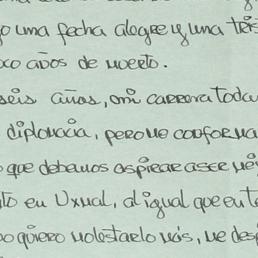 o una fecha alegre y una tris
oco años de muerto.
seis años, mi carrera toda
diplomacia, pero me conforma
o que debemos aspirar a ser
ito en Uxmal, al igual que en t
o quiero molestarlo más, me desp